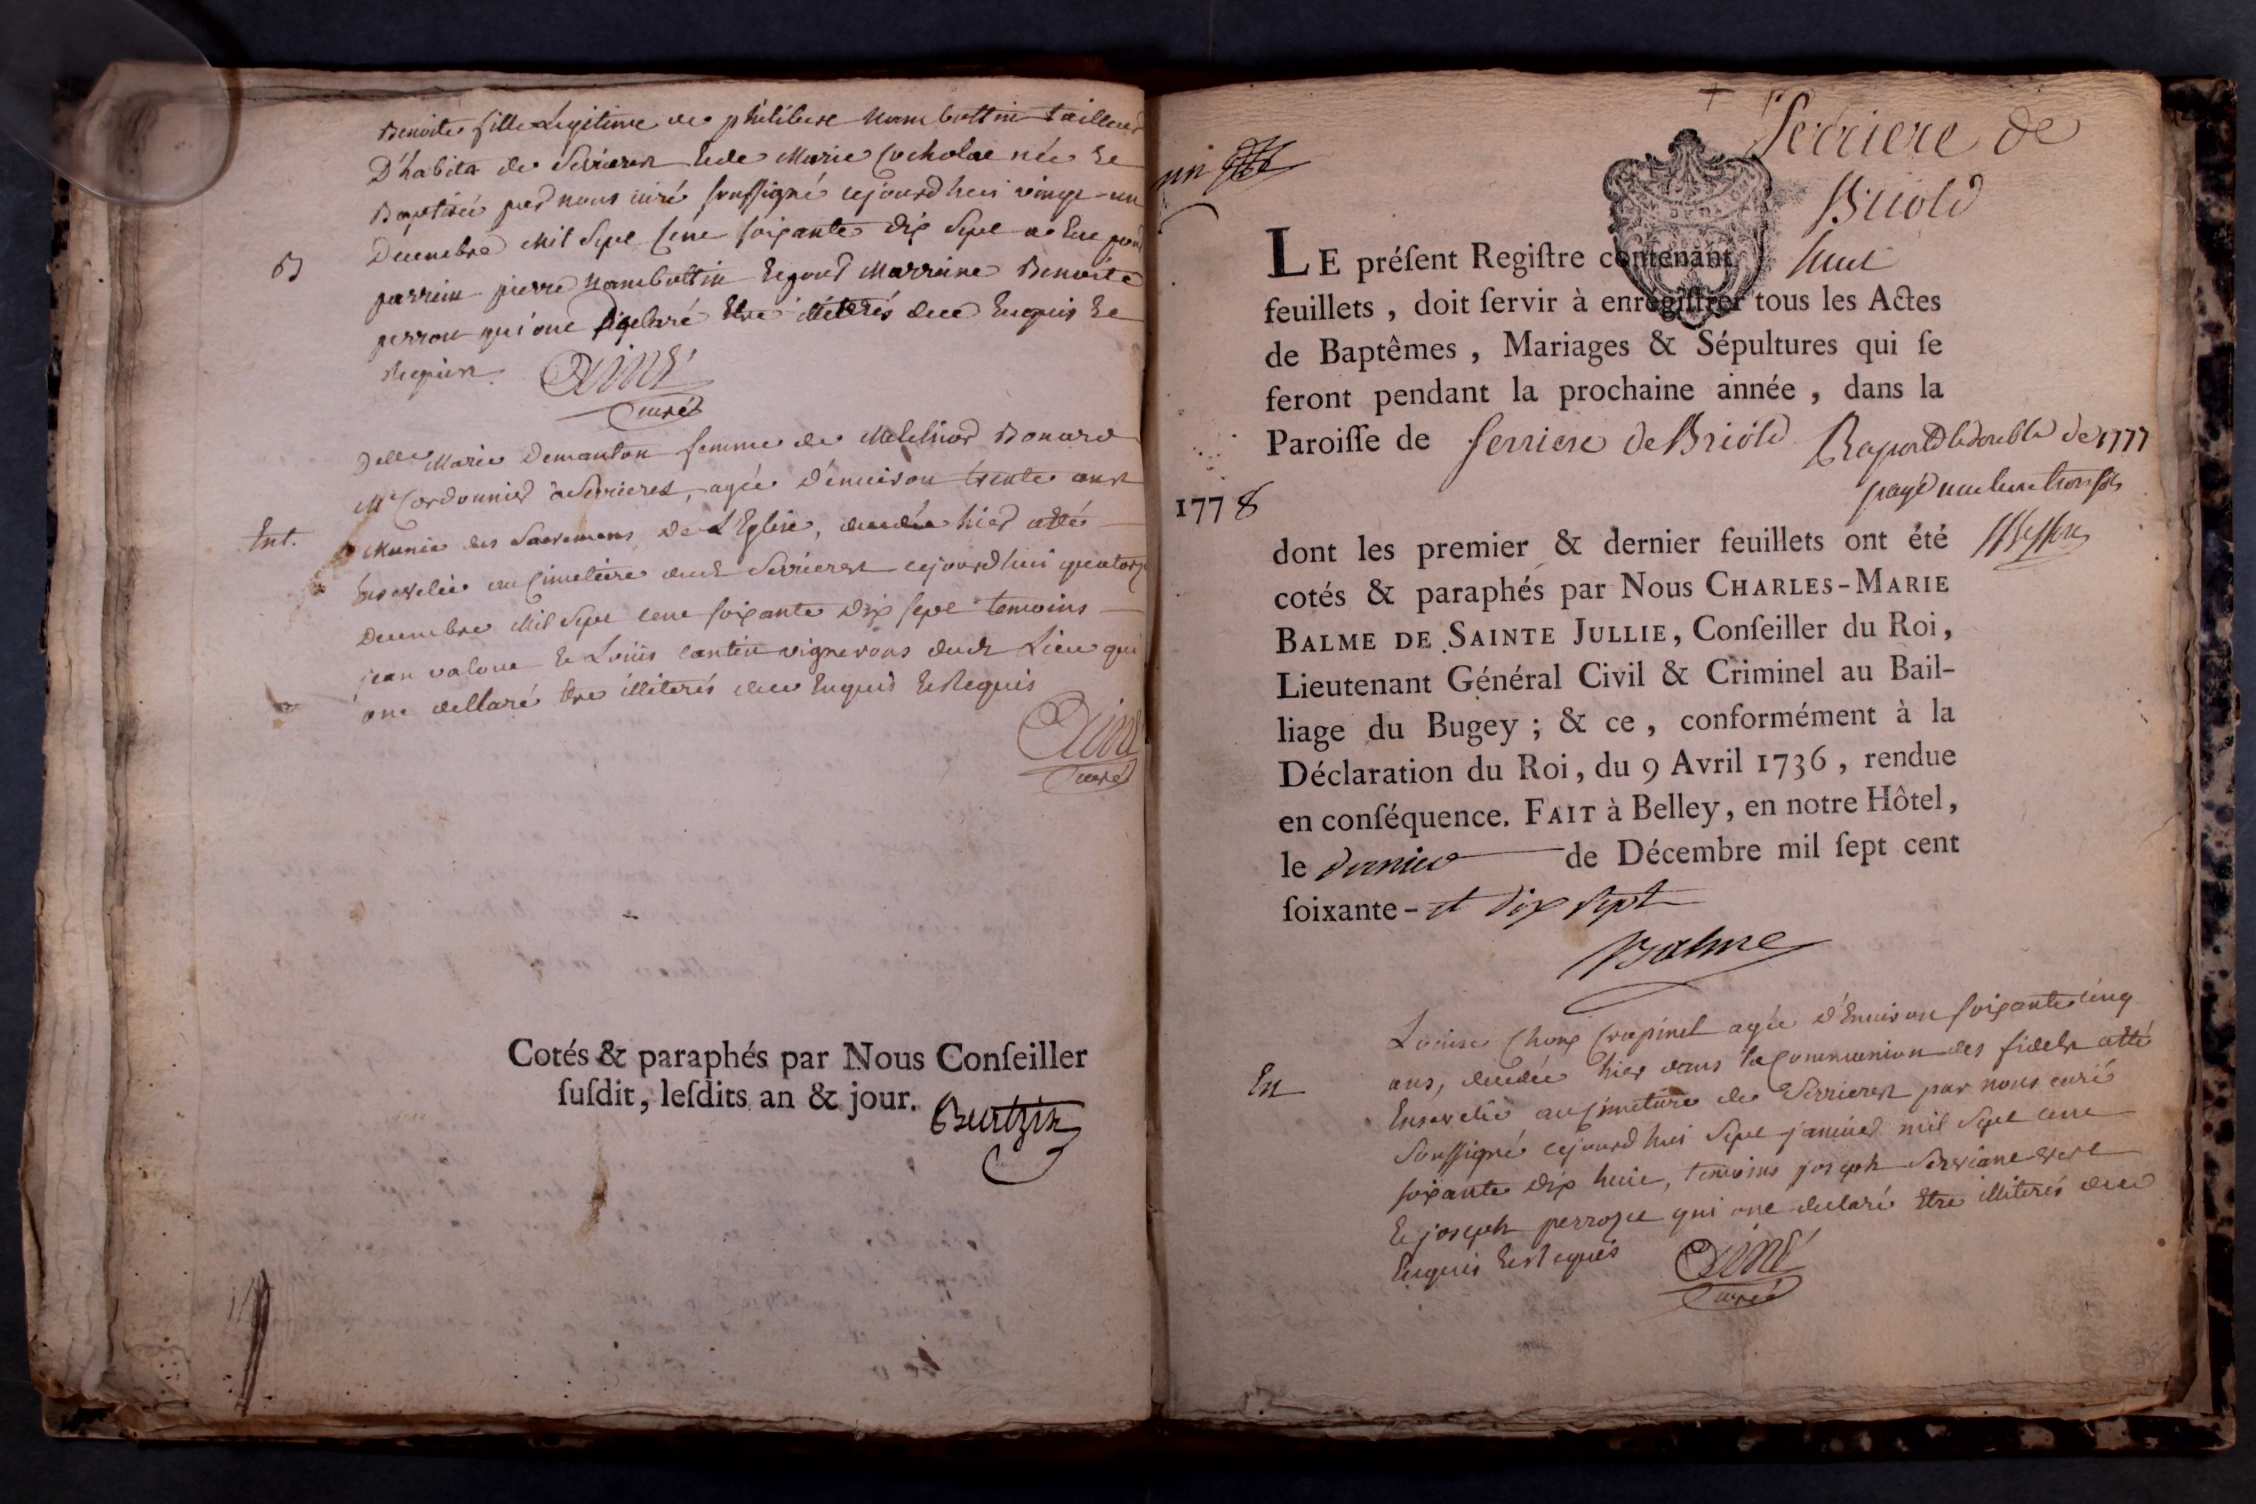 Benoite fille Legitime de philibert nambottin tailleur
D'habits de Serrieres et de Marie Cochola née et
Baptisée par nous curé soussigné cejourdhui vingt-un
Decembre Mil Sept Cent soixante dix Sept a eu pour
B
parrein pierre nambottin et pour Marreine Benoite
perron qui ont declaré être illiterés de ce Enquis et
Requis
curé
Delle Marie Demanton femme de Melchior Bonard
Me Cordonnier a Serrieres, agée d'environ trente ans
Ent.
Munie des Sacremens de L'Eglise, decedée hier a été
Ensevelie au Cimetiere dudt Serrieres cejourdhui quatorze
Decembre Mil Sept cent soixante dix sept temoins
jean et Louis cantin vignerons dudt Lieu qui
ont declaré être illiterés de ce Enquis et Requis
curé
Cotés & paraphés par Nous Conſeiller
ſuſdit, leſdits an & jour.
Serriere de
Briold
LE préſent Regiſtre contenant huit
feuillets, doit ſervir à enrégiſtrer tous les Actes
de Baptêmes, Mariages & Sépultures qui ſe
feront pendant la prochaine année, dans la
Paroiſſe de Serriere de Briold
Raporté le double de 1777
payé
1778
dont les premier & dernier feuillets ont été
cotés & paraphés par Nous CHARLES-MARIE
BALME DE SAINTE JULLIE, Conſeiller du Roi,
Lieutenant Général Civil & Criminel au Bail-
liage du Bugey ; & ce, conformément à la
Déclaration du Roi, du 9 Avril 1736, rendue
en conſéquence. FAIT à Belley, en notre Hôtel,
le dernier de Décembre mil ſept cent
ſoixante- et dix sept
Balme
Louise Chour Crapinel agée d'Environ soixante cinq
En
ans, decedée hier dans la Communion des fideles a été
Ensevelie au Cimetiere de Serrieres par nous curé
Soussigné cejourdhui Sept janvier mil Sept cent
soixante dix huit, temoins joseph
et joseph qui ont declaré être illiterés de ce
Enquis et Requis
curé